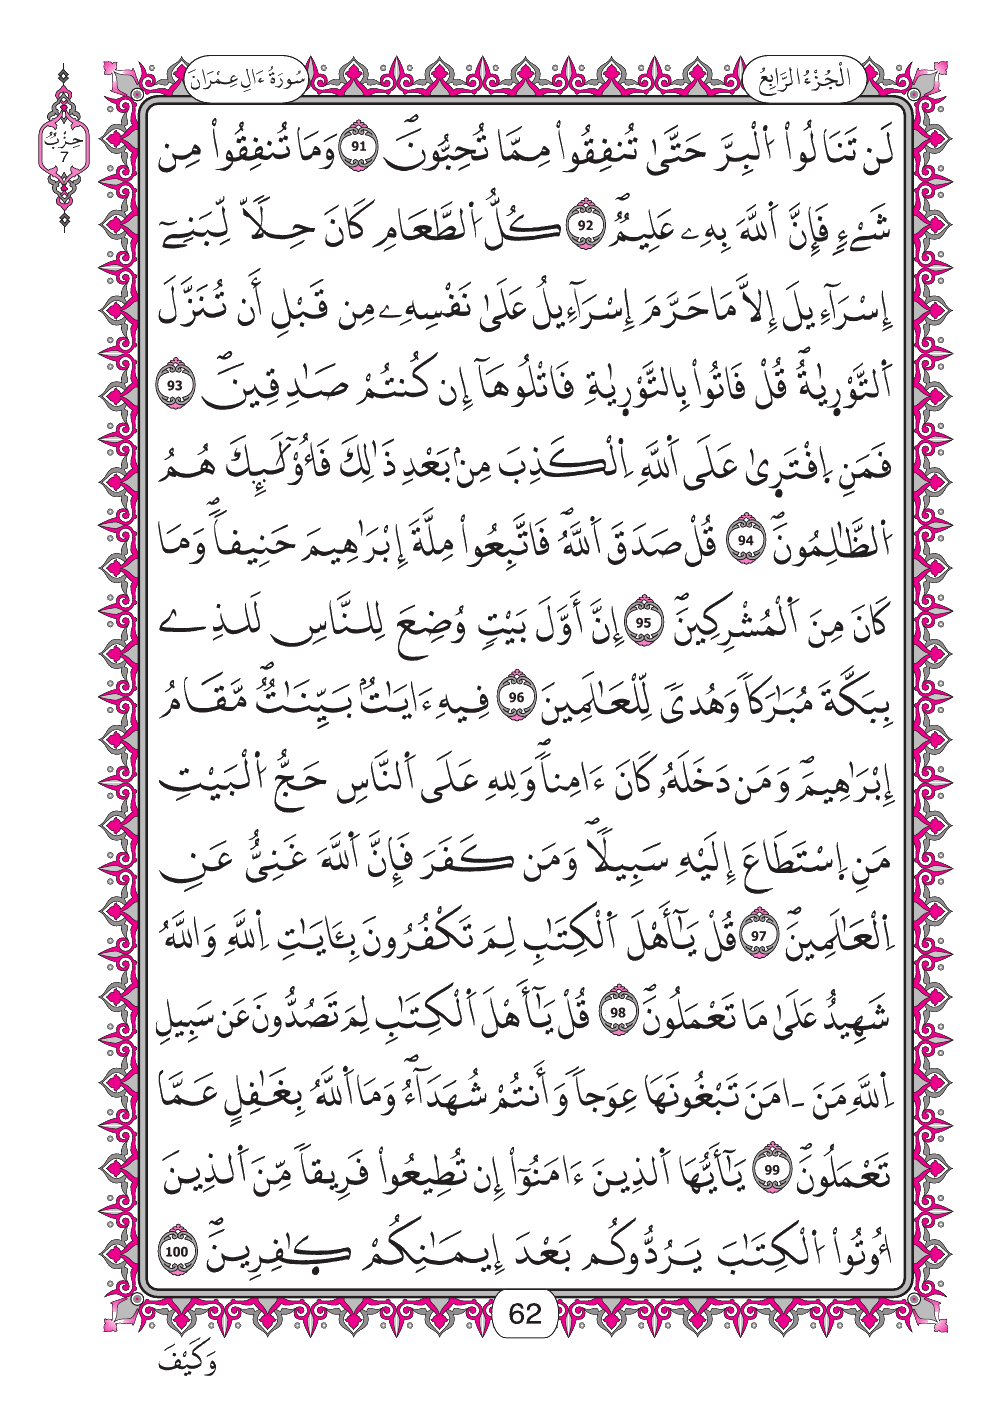 الْجُزْءُ الرَّابِعُ
سُورَةُ ءَالِ عِمْرَانَ
حِزْبٌ
7
لَن تَنَالُواْ اُ۬لْبِرَّ حَتَّىٰ تُنفِقُواْ مِمَّا تُحِبُّونَۖ 91 وَمَا تُنفِقُواْ مِن
شَےْءٖ فَإِنَّ اَ۬للَّهَ بِهِۦ عَلِيمٞۖ 92 كُلُّ اُ۬لطَّعَامِ كَانَ حِلّاٗ لِّبَنِےٓ
إِسْرَآءِيلَ إِلَّا مَا حَرَّمَ إِسْرَآءِيلُ عَلَىٰ نَفْسِهِۦ مِن قَبْلِ أَن تُنَزَّلَ
اَ۬لتَّوْرٜيٰةُۖ قُلْ فَاتُواْ بِالتَّوْرٜيٰةِ فَاتْلُوهَآ إِن كُنتُمْ صَٰدِقِينَۖ 93
فَمَنِ اِ۪فْتَرٜىٰ عَلَى اَ۬للَّهِ اِ۬لْكَذِبَ مِنۢ بَعْدِ ذَٰلِكَ فَأُوْلَٰٓئِكَ هُمُ
اُ۬لظَّٰلِمُونَۖ 94 قُلْ صَدَقَ اَ۬للَّهُۖ فَاتَّبِعُواْ مِلَّةَ إِبْرَٰهِيمَ حَنِيفاٗۖ وَمَا
كَانَ مِنَ اَ۬لْمُشْرِكِينَۖ 95 إِنَّ أَوَّلَ بَيْتٖ وُضِعَ لِلنَّاسِ لَلذِے
بِبَكَّةَ مُبَٰرَكاٗ وَهُدىٗ لِّلْعَٰلَمِينَ 96 فِيهِ ءَايَٰتُۢ بَيِّنَٰتٞۖ مَّقَامُ
إِبْرَٰهِيمَۖ وَمَن دَخَلَهُۥ كَانَ ءَامِناٗۖ وَلِلهِ عَلَى اَ۬لنَّاسِ حَجُّ اُ۬لْبَيْتِ
مَنِ اِ۪سْتَطَاعَ إِلَيْهِ سَبِيلاٗۖ وَمَن كَفَرَ فَإِنَّ اَ۬للَّهَ غَنِيٌّ عَنِ
اِ۬لْعَٰلَمِينَۖ 97 قُلْ يَٰٓأَهْلَ اَ۬لْكِتَٰبِ لِمَ تَكْفُرُونَ بِـَٔايَٰتِ اِ۬للَّهِ وَاللَّهُ
شَهِيدٌ عَلَىٰ مَا تَعْمَلُونَۖ 98 قُلْ يَٰٓأَهْلَ اَ۬لْكِتَٰبِ لِمَ تَصُدُّونَ عَن سَبِيلِ
اِ۬للَّهِ مَنَ اٰمَنَ تَبْغُونَهَا عِوَجاٗ وَأَنتُمْ شُهَدَآءُۖ وَمَا اَ۬للَّهُ بِغَٰفِلٍ عَمَّا
تَعْمَلُونَۖ 99 يَٰٓأَيُّهَا اَ۬لذِينَ ءَامَنُوٓاْ إِن تُطِيعُواْ فَرِيقاٗ مِّنَ اَ۬لذِينَ
أُوتُواْ اُ۬لْكِتَٰبَ يَرُدُّوكُم بَعْدَ إِيمَٰنِكُمْ كٰٜفِرِينَۖ 100
62
وَكَيْفَ